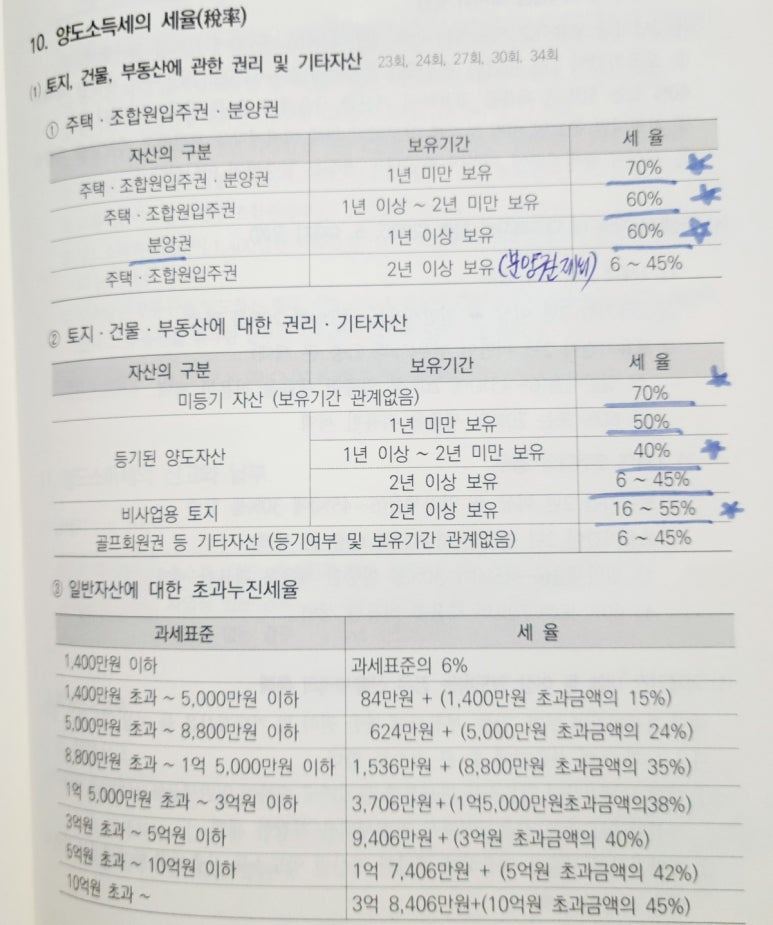 10. 양도소득세의 세율(稅率)
(1) 토지, 건물, 부동산에 관한 권리 및 기타자산 23회, 24회, 27회, 30회, 34회
① 주택·조합원입주권·분양권
자산의 구분 보유기간 세 율
주택·조합원입주권·분양권 1년 미만 보유 70%
주택·조합원입주권 1년 이상 ~ 2년 미만 보유 60%
분양권 1년 이상 보유 60%
주택·조합원입주권 2년 이상 보유 (분양권제외) 6 ~ 45%
② 토지·건물·부동산에 대한 권리·기타자산
자산의 구분 보유기간 세 율
미등기 자산 (보유기간 관계없음) 70%
등기된 양도자산 1년 미만 보유 50%
1년 이상 ~ 2년 미만 보유 40%
2년 이상 보유 6 ~ 45%
비사업용 토지 2년 이상 보유 16 ~ 55%
골프회원권 등 기타자산 (등기여부 및 보유기간 관계없음) 6 ~ 45%
③ 일반자산에 대한 초과누진세율
과세표준 세 율
1,400만원 이하 과세표준의 6%
1,400만원 초과 ~ 5,000만원 이하 84만원 + (1,400만원 초과금액의 15%)
5,000만원 초과 ~ 8,800만원 이하 624만원 + (5,000만원 초과금액의 24%)
8,800만원 초과 ~ 1억 5,000만원 이하 1,536만원 + (8,800만원 초과금액의 35%)
1억 5,000만원 초과 ~ 3억원 이하 3,706만원+(1억5,000만원초과금액의38%)
3억원 초과 ~ 5억원 이하 9,406만원+(3억원 초과금액의 40%)
5억원 초과 ~ 10억원 이하 1억 7,406만원 + (5억원 초과금액의 42%)
10억원 초과 ~ 3억 8,406만원+(10억원 초과금액의 45%)